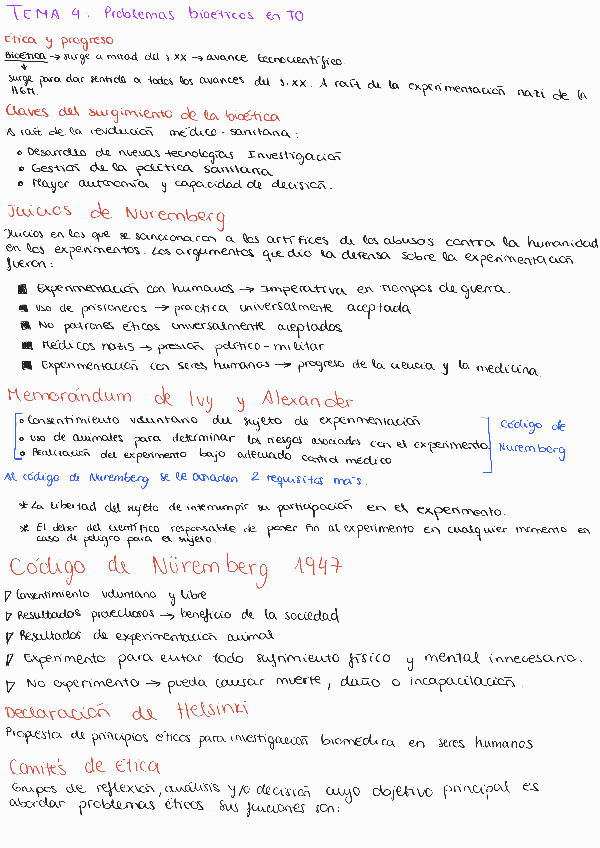 TEMA 4. Problemas bioéticos en TO
Ética y progreso
Bioética → surge a mitad del s.XX → avance tecnocientífico
↓
surge para dar sentido a todos los avances del s.XX. A raíz de la experimentación nazi de la
IIGM.
Claves del surgimiento de la bioética
A raíz de la revolución médico-sanitaria:
• Desarrollo de nuevas tecnologías Investigación
• Gestión de la política sanitaria
• Mayor autonomía y capacidad de decisión.
Juicios de Nuremberg
Juicios en los que se sancionaron a los artífices de los abusos contra la humanidad
en los experimentos. Los argumentos que dio la defensa sobre la experimentación
fueron:
■ Experimentación con humanos → Imperativa en tiempos de guerra.
■ Uso de prisioneros → practica universalmente aceptada
■ No patrones éticos universalmente aceptados
■ Médicos nazis → presión político-militar
■ Experimentación con seres humanos → progreso de la ciencia y la medicina.
Memorándum de Ivy y Alexander
• Consentimiento voluntario del sujeto de experimentación
• Uso de animales para determinar los riesgos asociados con el experimento
• Realización del experimento bajo adecuado control médico
Código de
Nuremberg
Al código de Nuremberg se le añaden 2 requisitos más.
* La libertad del sujeto de interrumpir su participación en el experimento.
* El deber del científico responsable de poner fin al experimento en cualquier momento en
caso de peligro para el sujeto.
Código de Nüremberg 1947
▷ Consentimiento voluntario y libre
▷ Resultados provechosos → beneficio de la sociedad
▷ Resultados de experimentación animal
▷ Experimento para evitar todo sufrimiento físico y mental innecesario.
▷ No experimento → pueda causar muerte, daño o incapacitación.
Declaración de Helsinki
Propuesta de principios éticos para investigación biomédica en seres humanos
Comités de ética
Grupos de reflexión, análisis y/o decisión cuyo objetivo principal es
abordar problemas éticos sus funciones son: